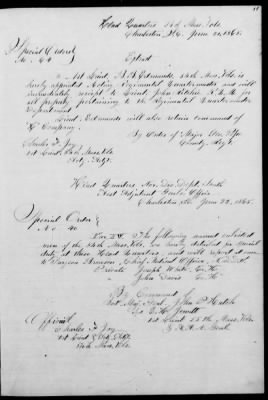 Head Quarters 54th Mass. Vols.
Charleston S.C. June 21, 1865.
Special Orders
No. 64
Extract
1st Lieut. B. B. Edmunds, 54th Mass. Vols. is
hereby appointed Acting Regimental Quartermaster and will
immediately receipt to Lieut. John Ritchie R.Q.M. for
all property pertaining to the Regimental Quartermaster
Department.
Lieut. Edmunds will also retain command of
"K" Company.
By Order of Major
Comdg. Regt.
Charles F. Joy
1st Lieut. 54th Mass. Vols.
Actg. Adjt.
Head Quarters Nor. Dis. Dept. South
Asst. Adjutant Genl's Office
Charleston S.C. June 22, 1865.
Special Orders
No. 40
The following named enlisted
men of the 54th Mass. Vols. are hereby detailed for special
duty at these Head Quarters, and will report at once
to Surgeon Chief Medical Officer
Private Joseph White Co. H.
" John Davis Co. H.
By Command
Bvt. Maj. Genl. John P. Hatch
Leo. C. Jewett
1st Lieut. 55th Mass. Vols.
Official
Charles F. Joy
1st Lieut. &
54th Mass. Vols.